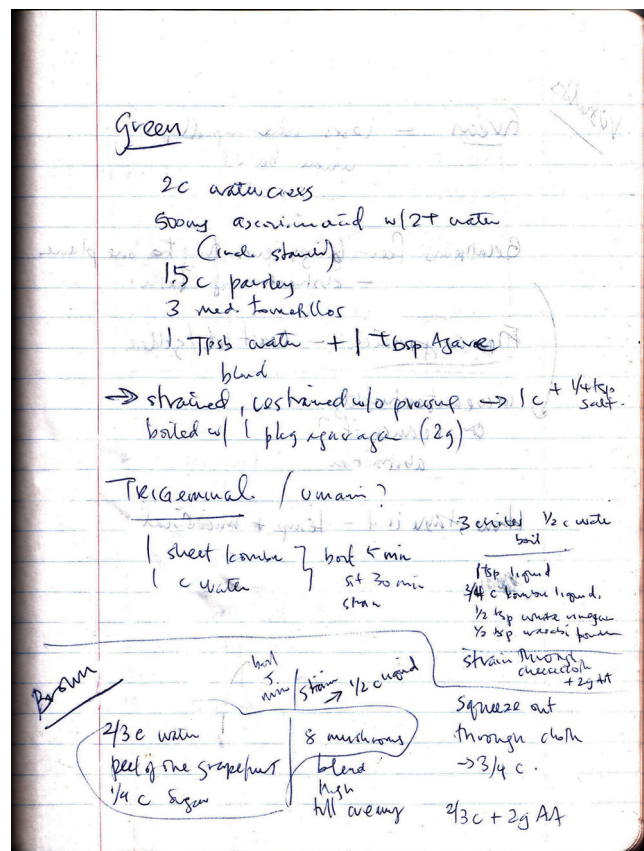 Green
2c watercress
500mg ascorbic acid w/ 2T water
1.5 c parsley
3 med. tomatillos
1 Tpsb water + 1 Tbsp Agave
blend
→ strained, restrained w/o pressing → 1 c + 1/4 tsp salt.
boiled w/ 1 pkg agar agar (2g)
TRIGEMINAL / umami?
1 sheet kombu
1 c water
boil 5 min
sit 30 min
strain
3 1/2 c water
boil
1 tsp liquid
3/4 c kombu liquid.
1/2 tsp white vinegar
1/2 tsp wasabi powder
strain through
cheesecloth
+ 2g AA
Brown
boil
5
min / strain → 1/2 c liquid
2/3 c water
peel of one grapefruit
1/4 c sugar
8 mushrooms
blend
high
till creamy
squeeze out
through cloth
→ 3/4 c.
2/3 c + 2g AA